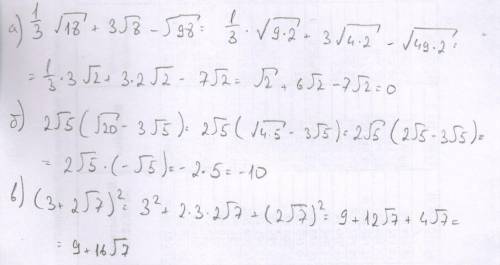 а) 1/3 √18 + 3√8 − √98 = 1/3 · √9·2 + 3√4·2 − √49·2 =
= 1/3 · 3√2 + 3·2√2 − 7√2 = √2 + 6√2 − 7√2 = 0
б) 2√5 (√20 − 3√5) = 2√5 (√4·5 − 3√5) = 2√5 (2√5 − 3√5) =
= 2√5 · (−√5) = −2·5 = −10
в) (3 + 2√7)² = 3² + 2·3·2√7 + (2√7)² = 9 + 12√7 + 4√7 =
= 9 + 16√7